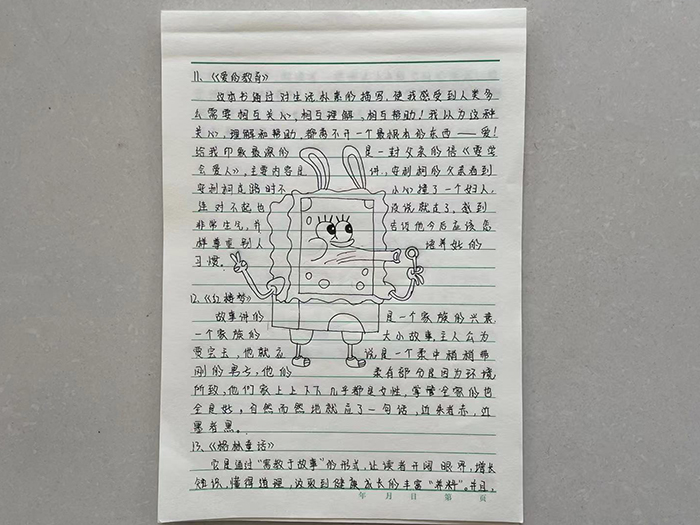 11、《爱的教育》
这本书通过对生活朴素的描写，使我感受到人类多
么需要相互关心，相互理解、相互帮助！我认为这种
关心，理解和帮助，都离不开一个最根本的东西——爱！
给我印象最深的 是一封父亲的信《要学
会爱人》，主要内容是 讲，安利柯的父亲看到
安利柯走路时不 小心撞了一个妇人，
连对不起也 没说就走了，感到
非常生气，并 告诉他今后应该怎
样尊重别人 培养好的
习惯。
12、《红楼梦》
故事讲的 是一个家族的兴衰
一个家族的 大小故事，主人公为
贾宝玉，他就应 说是一个柔中稍稍带
刚的男子，他的 柔有部分是因为环境
所致，他们家上上下下几乎都是女性，掌管全家的也
全是她，自然而然地就应了一句话，近朱者赤，近
墨者黑。
13、《格林童话》
它是通过“寓教于故事”的形式，让读者开阔眼界，增长
知识，懂得道理，汲取到健康成长的丰富“养料”。并且，
年 月 日 第 页